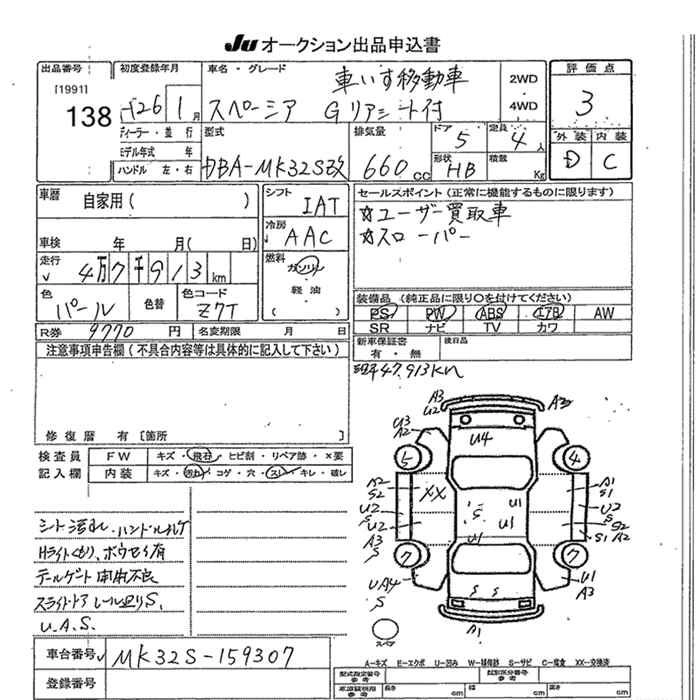 JU オークション出品申込書
出品番号
[1991]
138
初度登録年月
H26 1月
ディーラー・並行
モデル年式 年
ハンドル 左・右
車名・グレード
車いす移動車
スペーシア Gリアシート付
2WD
4WD
評価点
3
外装 内装
D C
型式
DBA-MK32S改
排気量
660cc
ドア
5
定員
4人
形状
HB
積載
Kg
車歴
自家用( )
車検 年 月( 日)
走行
4万7千913km
色
パール
色替
色コード
Z7T
R券 9770円
名変期限 月 日
シフト
IAT
冷房
AAC
燃料
ガソリン
軽油
( )
セールスポイント(正常に機能するものに限ります)
☆ユーザー買取車
☆スローパー
装備品(純正品に限り○を付けてください)
PS PW ABS エアB AW
SR ナビ TV カワ
新車保証書
有・無
後日品
注意事項申告欄(不具合内容等は具体的に記入して下さい)
修復歴 有[箇所 ]
47,913km
検査員
記入欄
FW キズ・飛石・ヒビ割・リペア跡・×要
内装 キズ・汚れ・コゲ・穴・スレ・キレ・破レ
シート汚れ、ハンドルハゲ
Hライトくもり、ホウセイ有
テールゲート開閉不良
スライドドアレール廻りS、
U.A.S.
車台番号 MK32S-159307
登録番号
A3
U2
A3
U3
A2
U4
5
4
XX
A2
S2
U2
S
U2
A3
S
S
U1
U1
U1
A1
S1
U2
S
S2
S1
A2
7
7
UA4
S
S S
U1
A3
A1
スペア
A-キズ E-エクボ U-凹み W-補修跡 S-サビ C-腐食 XX-交換済
型式指定番号
参考
類別区分番号
参考
車庫証明用
参考
長さ cm
幅 cm
高さ cm